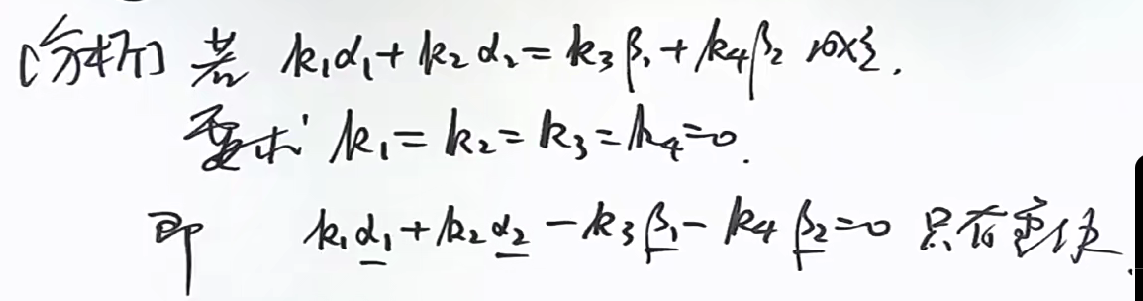 [分析] 若 k₁α₁+k₂α₂=k₃β₁+k₄β₂ 成立.
要求 k₁=k₂=k₃=k₄=0.
即 k₁α₁+k₂α₂-k₃β₁-k₄β₂=0 只有零解.